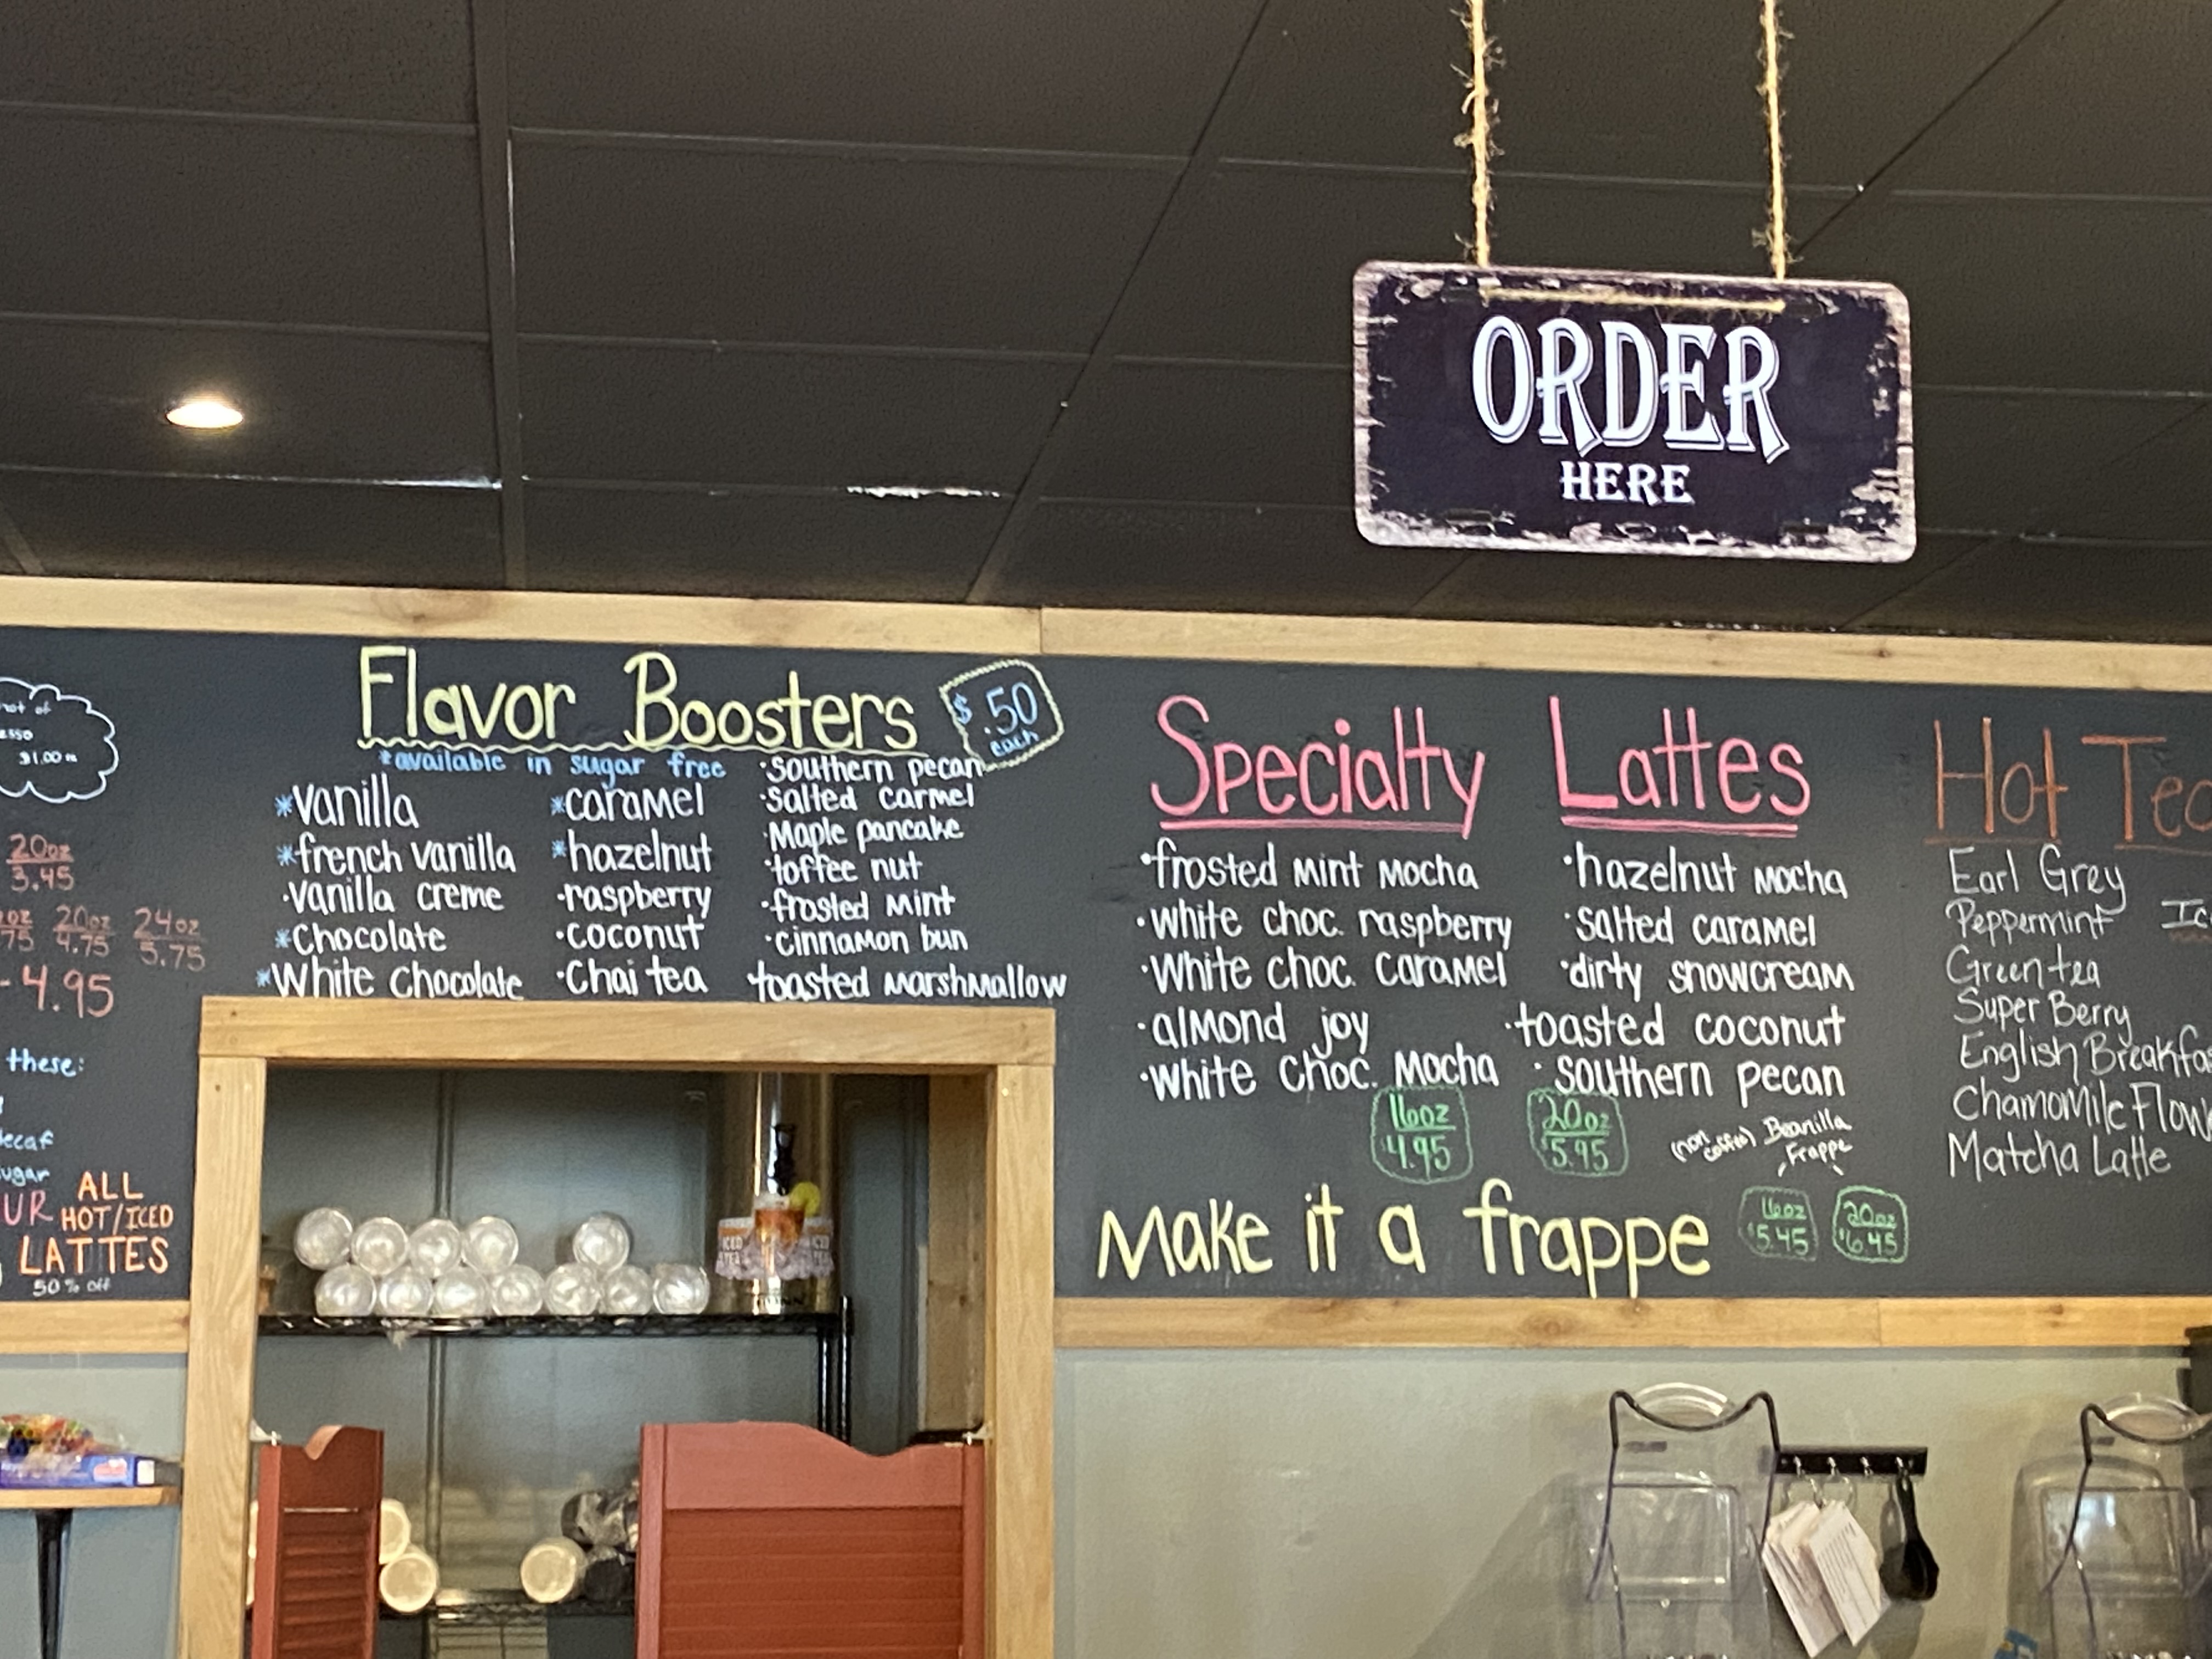 ORDER
HERE
$1.00
20oz
3.45
20oz 24oz
4.75 5.75
4.95
these:
ALL
HOT/ICED
LATTES
50% off
Flavor Boosters
$.50
each
*available in sugar free
*vanilla
*french vanilla
·vanilla creme
*Chocolate
*White Chocolate
*caramel
*hazelnut
·raspberry
·coconut
·Chai tea
·southern pecan
·salted carmel
·Maple pancake
·toffee nut
·frosted mint
·cinnamon bun
·toasted marshmallow
Specialty Lattes
·frosted mint mocha
·white choc. raspberry
·White choc. caramel
·almond joy
·white choc. mocha
·hazelnut mocha
·salted caramel
·dirty snowcream
·toasted coconut
·southern pecan
16oz
$4.95
20oz
5.95
(non coffee) Beanilla
Frappe
Make it a frappe
16oz
$5.45
20oz
$6.45
Hot
Earl Grey
Peppermint
Green tea
Super Berry
English
Chamomile
Matcha Latte
ICED
TEA